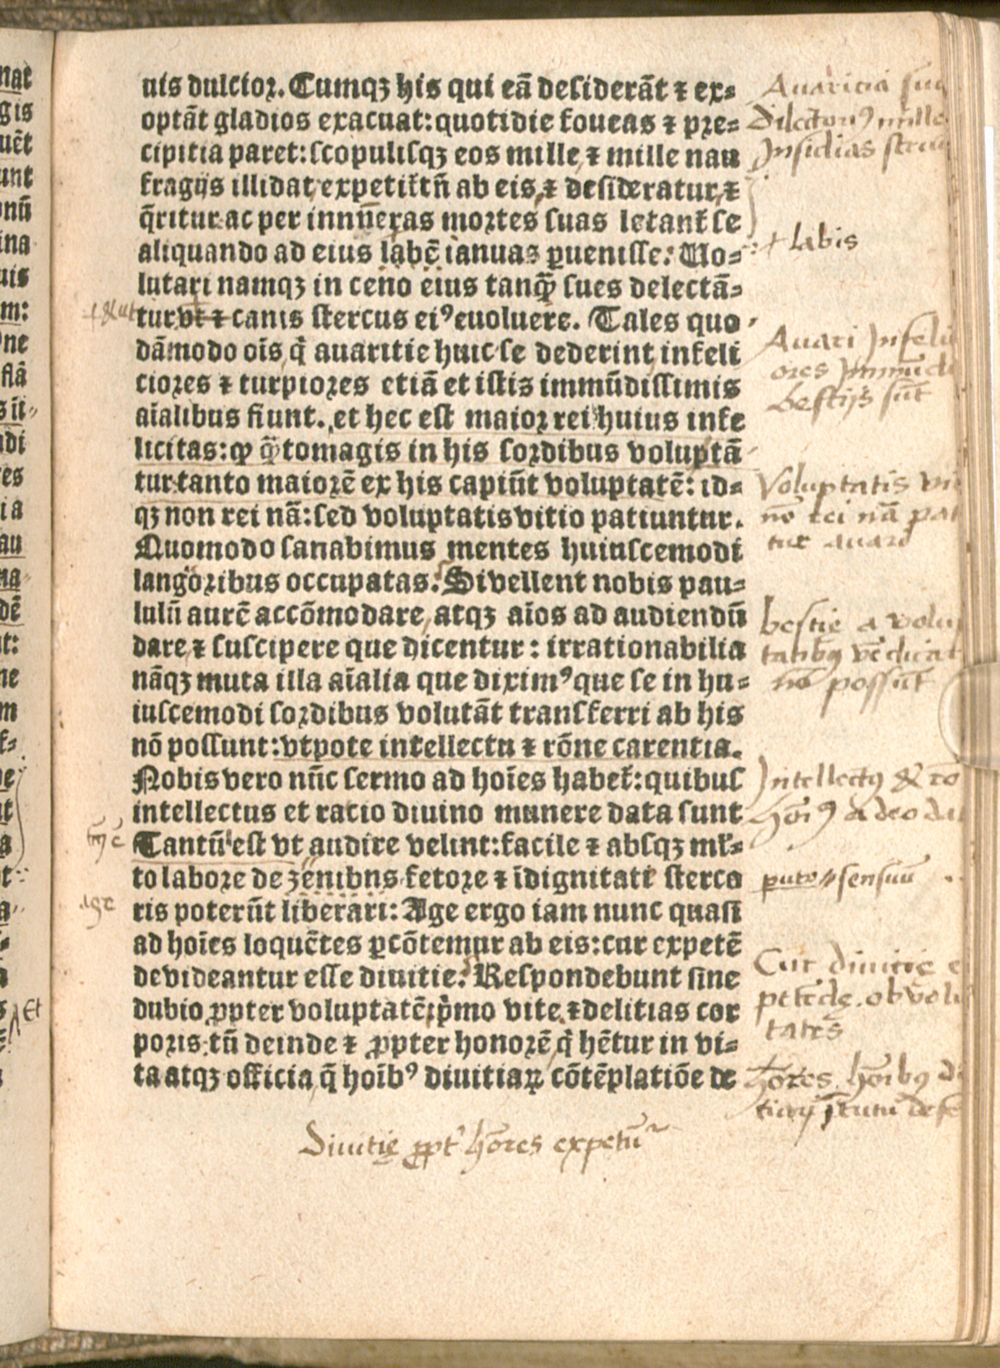 nis dulcior. Cumqꝫ his qui eā desiderāt ⁊ ex⸗
optāt gladios exacuat: quotidie foueas ⁊ pre⸗
cipitia paret: scopulisqꝫ eos mille ⁊ mille nau
fragijs illidat expetit̄ tn̄ ab eis ⁊ desideratur ⁊
q̄ritur ac per innn̄eras mortes suas letant̄ se
aliquando ad eius labē ianuas ꝑuenisse. Uo⸗
lutari namqꝫ in ceno eius tanqꝫ̄ sues delectā⸗
tur vt ⁊ canis stercus eiꝰ euoluere. Tales quo
dāmodo oīs q̇ auaritie huic se dederint infeli
ciores ⁊ turpiores etiā et istis immūdissimis
aīalibus fiunt. et hec est maior rei huius infe
licitas: ꝙ q̄tomagis in his sordibus voluptā
tur tanto maiorē ex his capiūt voluptatē: id⸗
qꝫ non rei nā: sed voluptatis vitio patiuntur.
Quomodo sanabimus mentes huiuscemodi
langoribus occupatas. Si vellent nobis pau⸗
lulū aurē accōmodare atqꝫ aīos ad audiendū
dare ⁊ suscipere que dicentur: irrationabilia
nāqꝫ muta illa aīalia que diximꝰ que se in hu⸗
iuscemodi sordibus volutāt transferri ab his
nō possunt: vtpote intellectu ⁊ rōne carentia.
Nobis vero nūc sermo ad hoīes habet̄: quibus
intellectus et ratio diuino munere data sunt
Tantū est vt audire velint: facile ⁊ absqꝫ ml̄⸗
to labore de zenibns fetore ⁊ īdignitate sterco
ris poterūt liberari: Age ergo iam nunc quasi
ad hoīes loquētes ꝑcōtemur ab eis: cur expetē
de videantur esse diuitie. Respondebunt sine
dubio ꝓpter voluptatē p̄mo vite ⁊ delitias cor
poris: tn̄ deinde ⁊ ꝓpter honorē q̇ hētur in vi⸗
ta atqꝫ officia q̄ hoībꝰ diuitiaꝝ cōtēplatiōe de
Auaricia
Dilectoribꝰ mille
Insidias
+ labis
Auari Infeli
ores Immūdi
bestijs sūt
Voluptatis
nō rei nā pat
tur auaro
bestie a volup
tatibꝰ
nō possūt
Intellectꝰ & ro
hōibꝰ a deo dat
puto sensuū
age
Cur diuitie
petēdę. ob volu
tates
hōres hōibꝰ
Diuitię ꝓpt̄ hōres expetūr